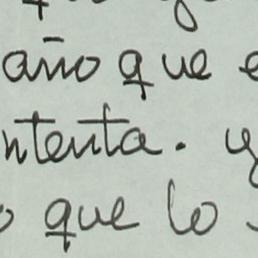 año que
ntenta. y
que lo